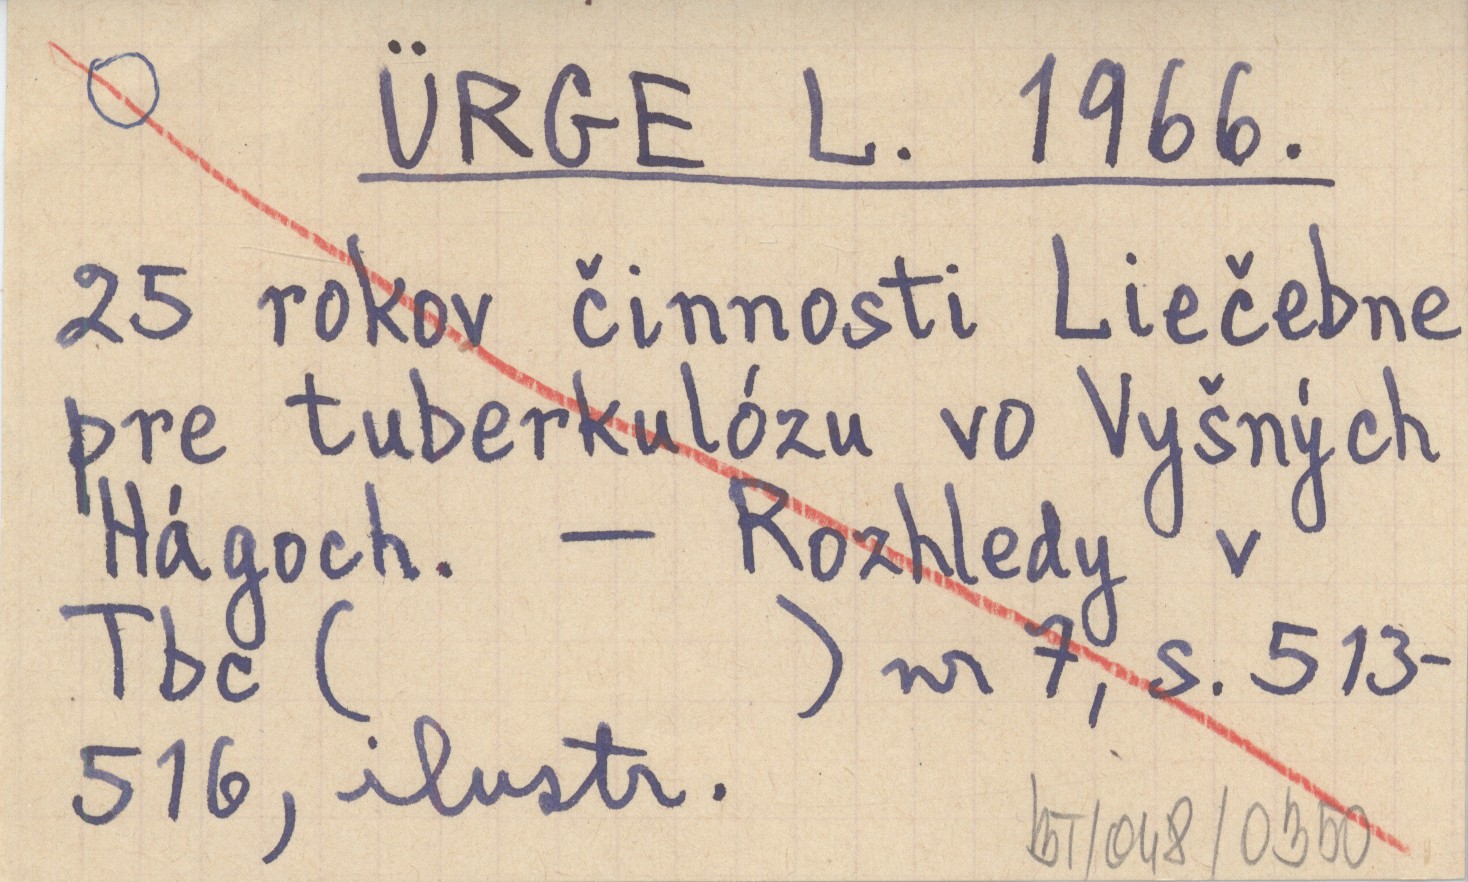 ÜRGE L. 1966.
25 rokov činnosti Liečebne
pre tuberkulózu vo Vyšných
Hágoch. — Rozhledy v
Tbc ( ) nr 7, s. 513-
516, ilustr.
BT/048/0350